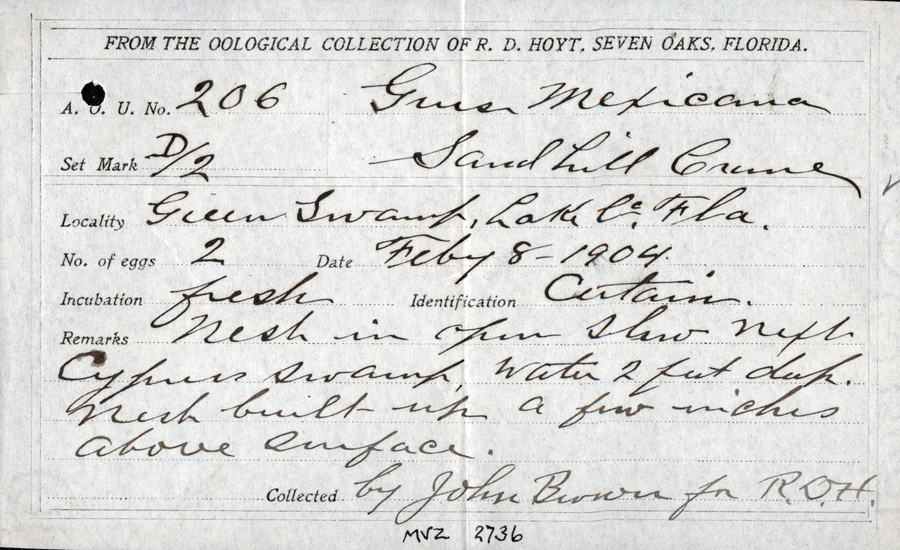 FROM THE OOLOGICAL COLLECTION OF R. D. HOYT, SEVEN OAKS, FLORIDA.
A. O. U. No. 206 Grus Mexicana
Set Mark D/2 Sand hill Crane
Locality Green Swamp, Lake Co. Fla.
No. of eggs 2 Date Feby 8-1904
Incubation fresh Identification Certain.
Remarks Nest in open slew next
Cypress swamp, water 2 feet deep.
Nest built up a few inches
above surface.
Collected by John Brown for R.D.H.
MVZ 2736